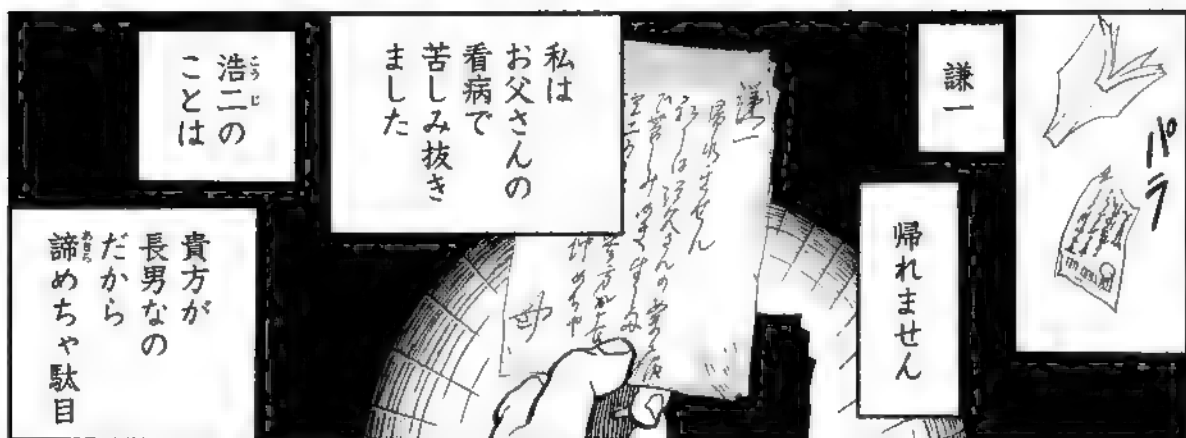 パラ
謙一
帰れません
私は
お父さんの
看病で
苦しみ抜き
ました
浩二の
ことは
貴方が
長男なの
だから
諦めちゃ駄目